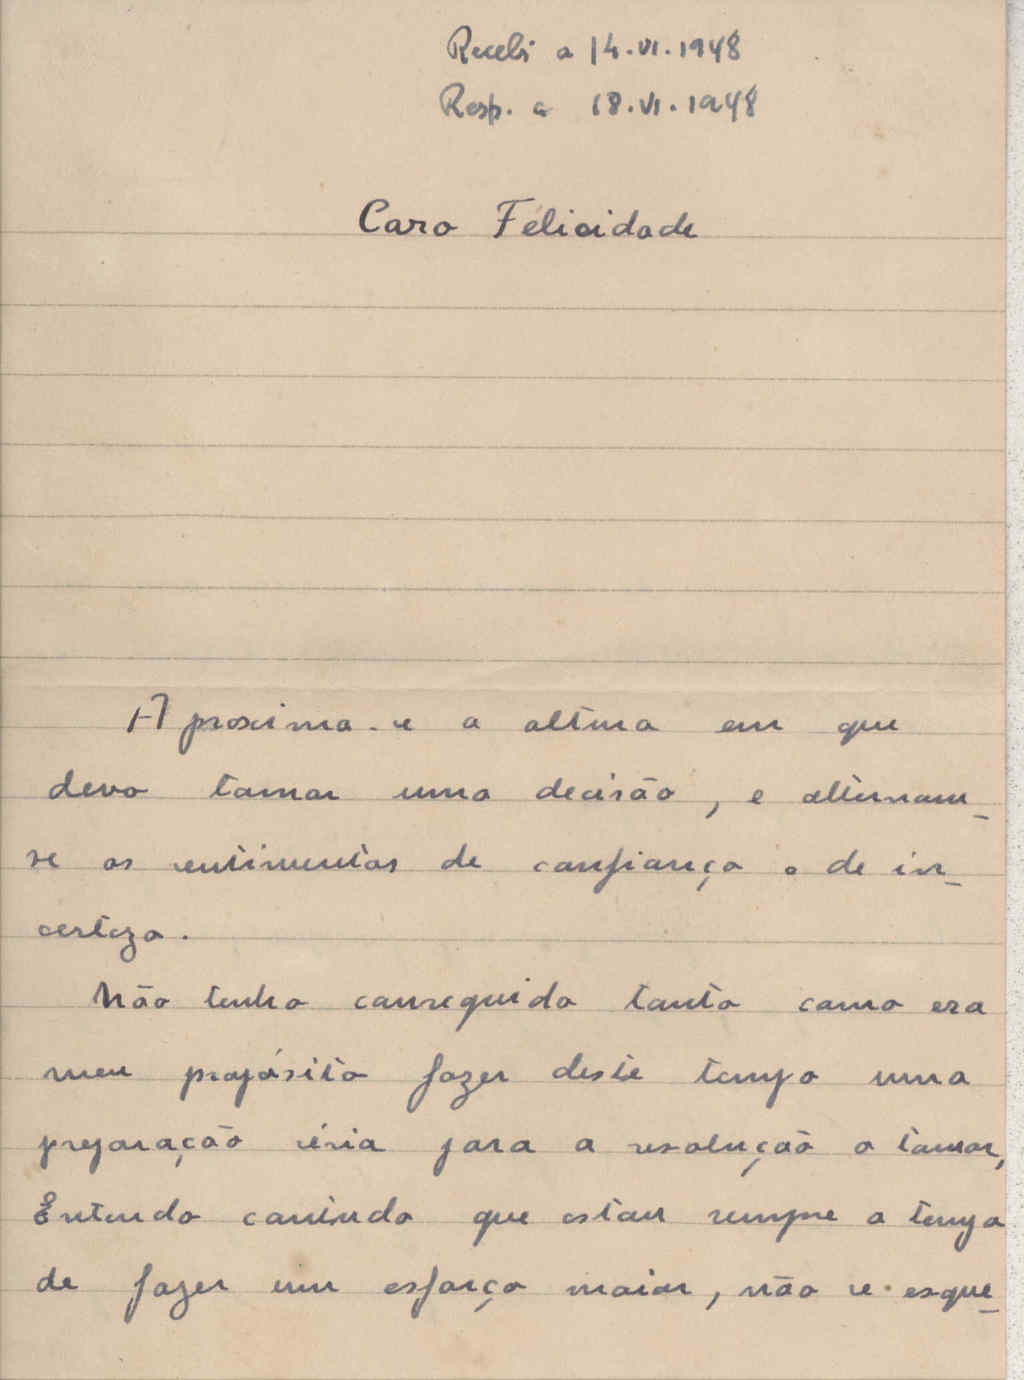 Recebi a 14.VI.1948
Resp. a 18.VI.1948
Caro Felicidade
Aproxima-se a altura em que
devo tomar uma decisão, e alternam-
se os sentimentos de confiança e de in-
certeza.
Não tenho conseguido tanto como era
meu propósito fazer deste tempo uma
preparação séria para a resolução a tomar,
Entendo contudo que estou sempre a tempo
de fazer um esforço maior, não se esque-